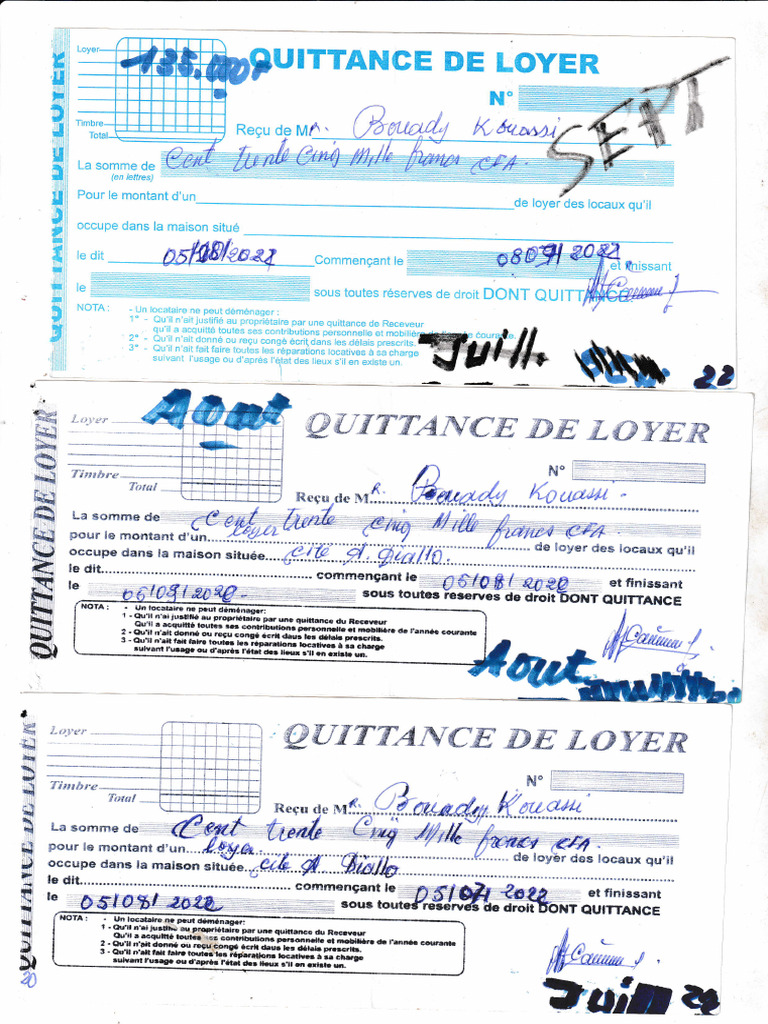 QUITTANCE DE LOYER
Loyer
135.000F
QUITTANCE DE LOYER
N°
SEPT
Timbre
Total
Reçu de Mr. Bouady Kouassi
La somme de Cent trente Cinq Mille francs CFA.
(en lettres)
Pour le montant d'un de loyer des locaux qu'il
occupe dans la maison situé
le dit Commençant le et finissant
le sous toutes réserves de droit DONT QUITTANCE
NOTA : - Un locataire ne peut déménager :
1° - Qu'il n'ait justifié au propriétaire par une quittance de Receveur
qu'il a acquitté toutes ses contributions personnelle et mobilière de l'année courante.
2° - Qu'il n'ait donné ou reçu congé écrit dans les délais prescrits.
3° - Qu'il n'ait fait faire toutes les réparations locatives à sa charge
suivant l'usage ou d'après l'état des lieux s'il en existe un.
Juill. 22
QUITTANCE DE LOYER
Loyer
Aout
QUITTANCE DE LOYER
N°
Timbre
Total
Reçu de M R. Bouady Kouassi.
La somme de Cent trente cinq Mille francs CFA
pour le montant d'un loyer de loyer des locaux qu'il
occupe dans la maison située cité A. Diallo
le dit commençant le 05/08/2022 et finissant
le 05/09/2022. sous toutes reserves de droit DONT QUITTANCE
NOTA : - Un locataire ne peut déménager:
1 - Qu'il n'ai justifié au propriétaire par une quittance du Receveur
Qu'il a acquitté toutes ses contributions personnelle et mobilière de l'année courante
2 - Qu'il n'ait donné ou reçu congé écrit daus les délais prescrits.
3 - Qu'il n'ait fait faire toutes les réparations locatives à sa charge
suivant l'usage ou d'après l'état des lieux s'il en existe un.
Aout
QUITTANCE DE LOYER
Loyer
QUITTANCE DE LOYER
N°
Timbre
Total
Reçu de M R. Bouady Kouassi
La somme de Cent trente Cinq Mille francs CFA.
pour le montant d'un loyer de loyer des locaux qu'il
occupe dans la maison située cité A Diallo
le dit commençant le 05/07/2022 et finissant
le 05/08/2022 sous toutes reserves de droit DONT QUITTANCE
NOTA : - Un locataire ne peut déménager:
1 - Qu'il n'ai justifié au propriétaire par une quittance du Receveur
Qu'il a acquitté toutes ses contributions personnelle et mobilière de l'année courante
2 - Qu'il n'ait donné ou reçu congé écrit dans les délais prescrits.
3 - Qu'il n'ait fait faire toutes les réparations locatives à sa charge
suivant l'usage ou d'après l'état des lieux s'il en existe un.
20
Juin 22